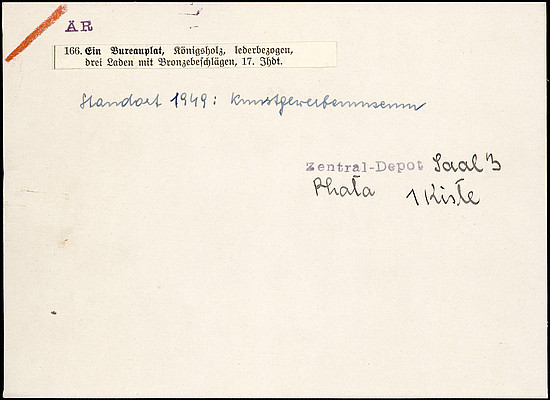 ÄR
166. Ein Bureauplat, Königsholz, lederbezogen,
drei Laden mit Bronzebeschlägen, 17. Jhdt.
Standort 1949: Kunstgewerbemuseum
Zentral-Depot Saal
1 Kiste